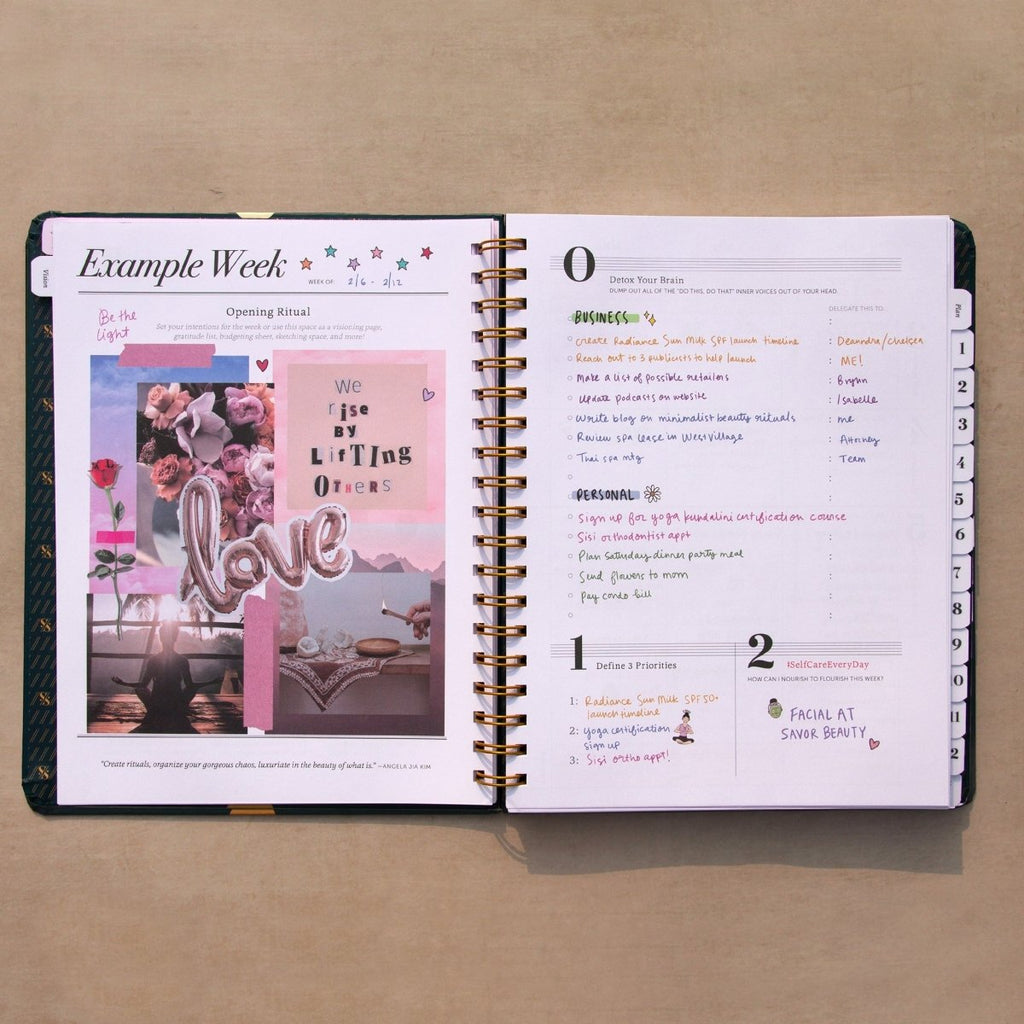 Vision
Example Week
WEEK OF: 2/6 - 2/12
Be the
light
Opening Ritual
Set your intentions for the week or use this space as a visioning page,
gratitude list, budgeting sheet, sketching space, and more!
We
rise
BY
LifTIng
OTHERS
love
"Create rituals, organize your gorgeous chaos, luxuriate in the beauty of what is." —ANGELA JIA KIM
0
Detox Your Brain
DUMP OUT ALL OF THE "DO THIS, DO THAT" INNER VOICES OUT OF YOUR HEAD.
DELEGATE THIS TO:
BUSINESS
create Radiance Sun Milk SPF launch timeline : Deanndra/chelsea
Reach out to 3 publicists to help launch : ME!
Make a list of possible retailers : Brynn
Update podcasts on website : Isabelle
Write blog on minimalist beauty rituals : me
Review spa lease in West Village : Attorney
Thai spa mtg : Team
PERSONAL
Sign up for yoga kundalini certification course
Sisi orthodontist appt
Plan Saturday dinner party meal
Send flowers to mom
Pay condo bill
1 Define 3 Priorities
1: Radiance Sun Milk SPF 50+
launch timeline
2: yoga certification
sign up
3: Sisi ortho appt!
2 #SelfCareEveryDay
HOW CAN I NOURISH TO FLOURISH THIS WEEK?
FACIAL AT
SAVOR BEAUTY
Plan
1
2
3
4
5
6
7
8
9
0
11
2